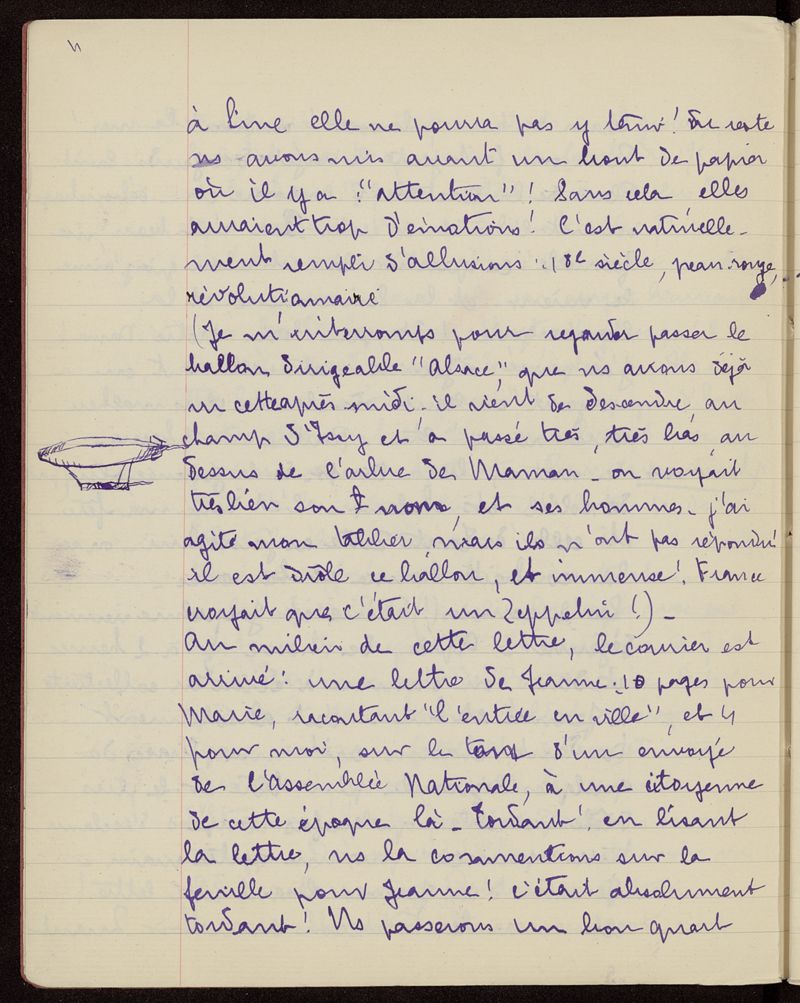 à Line elle ne pourra pas y tenir ! Du reste
ns avons mis avant un bout de papier
où il y a : "attention" ! Sans cela elles
auraient trop d'émotions ! C'est naturelle-
ment rempli d'allusions : 18e siècle, peau-rouge,
révolutionnaire
(Je m'interromps pour regarder passer le
ballon dirigeable "Alsace", que ns avons déjà
vu cette après-midi. il vient de descendre au
champ d'Issy et a passé très, très bas, au
dessus de l'arbre de Maman - on voyait
très bien son nom, et ses hommes. j'ai
agité mon tablier, mais ils n'ont pas répondu
il est drôle ce ballon, et immense ! France
croyait que c'était un Zeppelin !) -
Au milieu de cette lettre, le courrier est
arrivé : une lettre de Jeanne : 10 pages pour
Marie, racontant "l'entrée en ville", et 4
pour moi, sur le ton d'un envoyé
de l'Assemblée Nationale, à une citoyenne
de cette époque là - tordant ! en lisant
la lettre, ns la commentions sur la
feuille pour Jeanne ! c'était absolument
tordant ! Ns passerons un bon quart